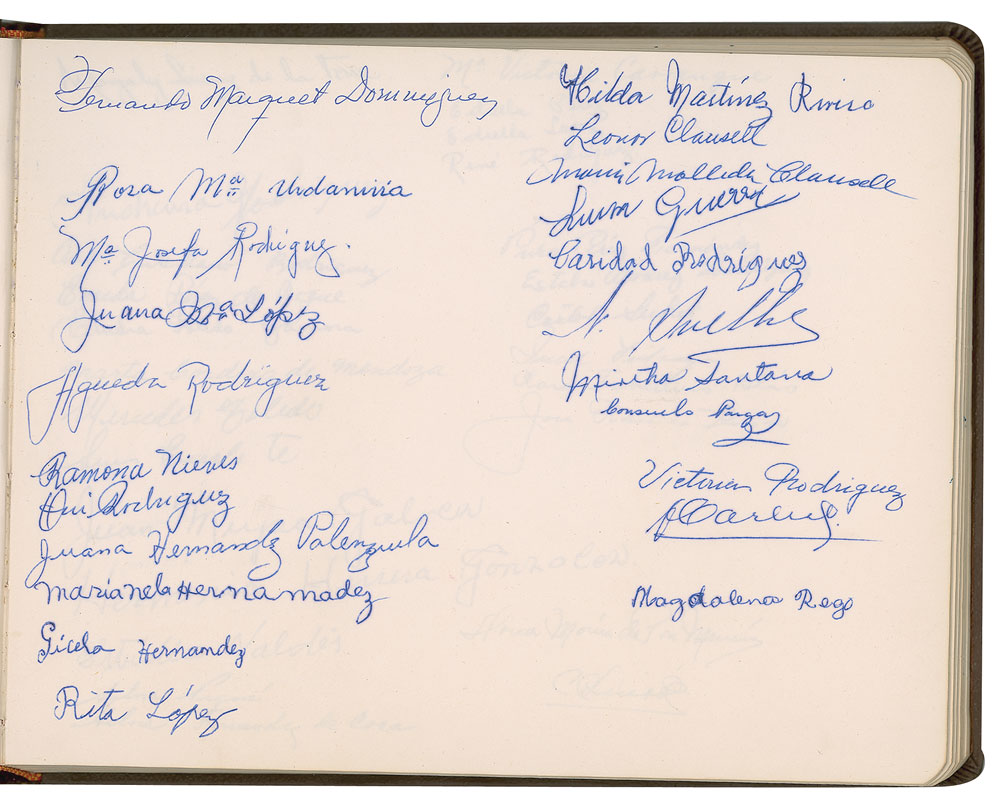 Fernando Marquet Dominguez
Rosa Mª Urdanivia
Mª Josefa Rodriguez.
Juana Mª López
Agueda Rodriguez
Ramona Nieves
Rodriguez
Juana Hernandz Palenzuela
Marianela Hernamadez
Gicela Hernandez
Rita López
Hilda Martinez Rivero
Leonor Clausell
Maria Molleda Clausell
Guerra
Caridad Rodríguez
Mirtha Santana
Consuelo
Victoria Rodriguez
Magdalena Rego